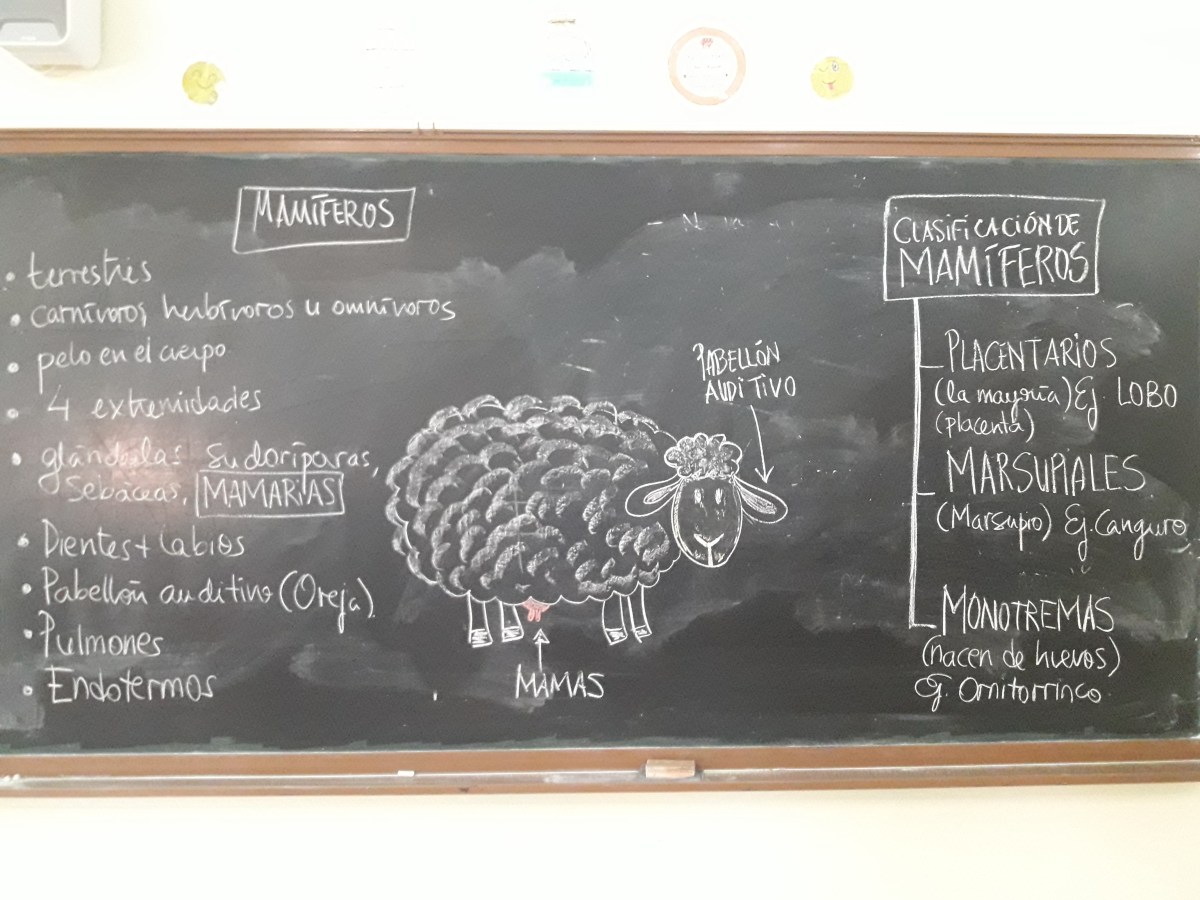 MAMÍFEROS
• terrestres
• carnívoros, herbívoros u omnívoros
• pelo en el cuerpo
• 4 extremidades
• glándulas sudoríparas,
sebáceas, MAMARIAS
• Dientes + labios
• Pabellón auditivo (Oreja).
• Pulmones
• Endotermos
PABELLÓN
AUDITIVO
MAMAS
CLASIFICACIÓN DE
MAMÍFEROS
PLACENTARIOS
(la mayoría) Ej. LOBO
(placenta)
MARSUPIALES
(Marsupio) Ej. Canguro
MONOTREMAS
(nacen de huevos)
Ej. Ornitorrinco